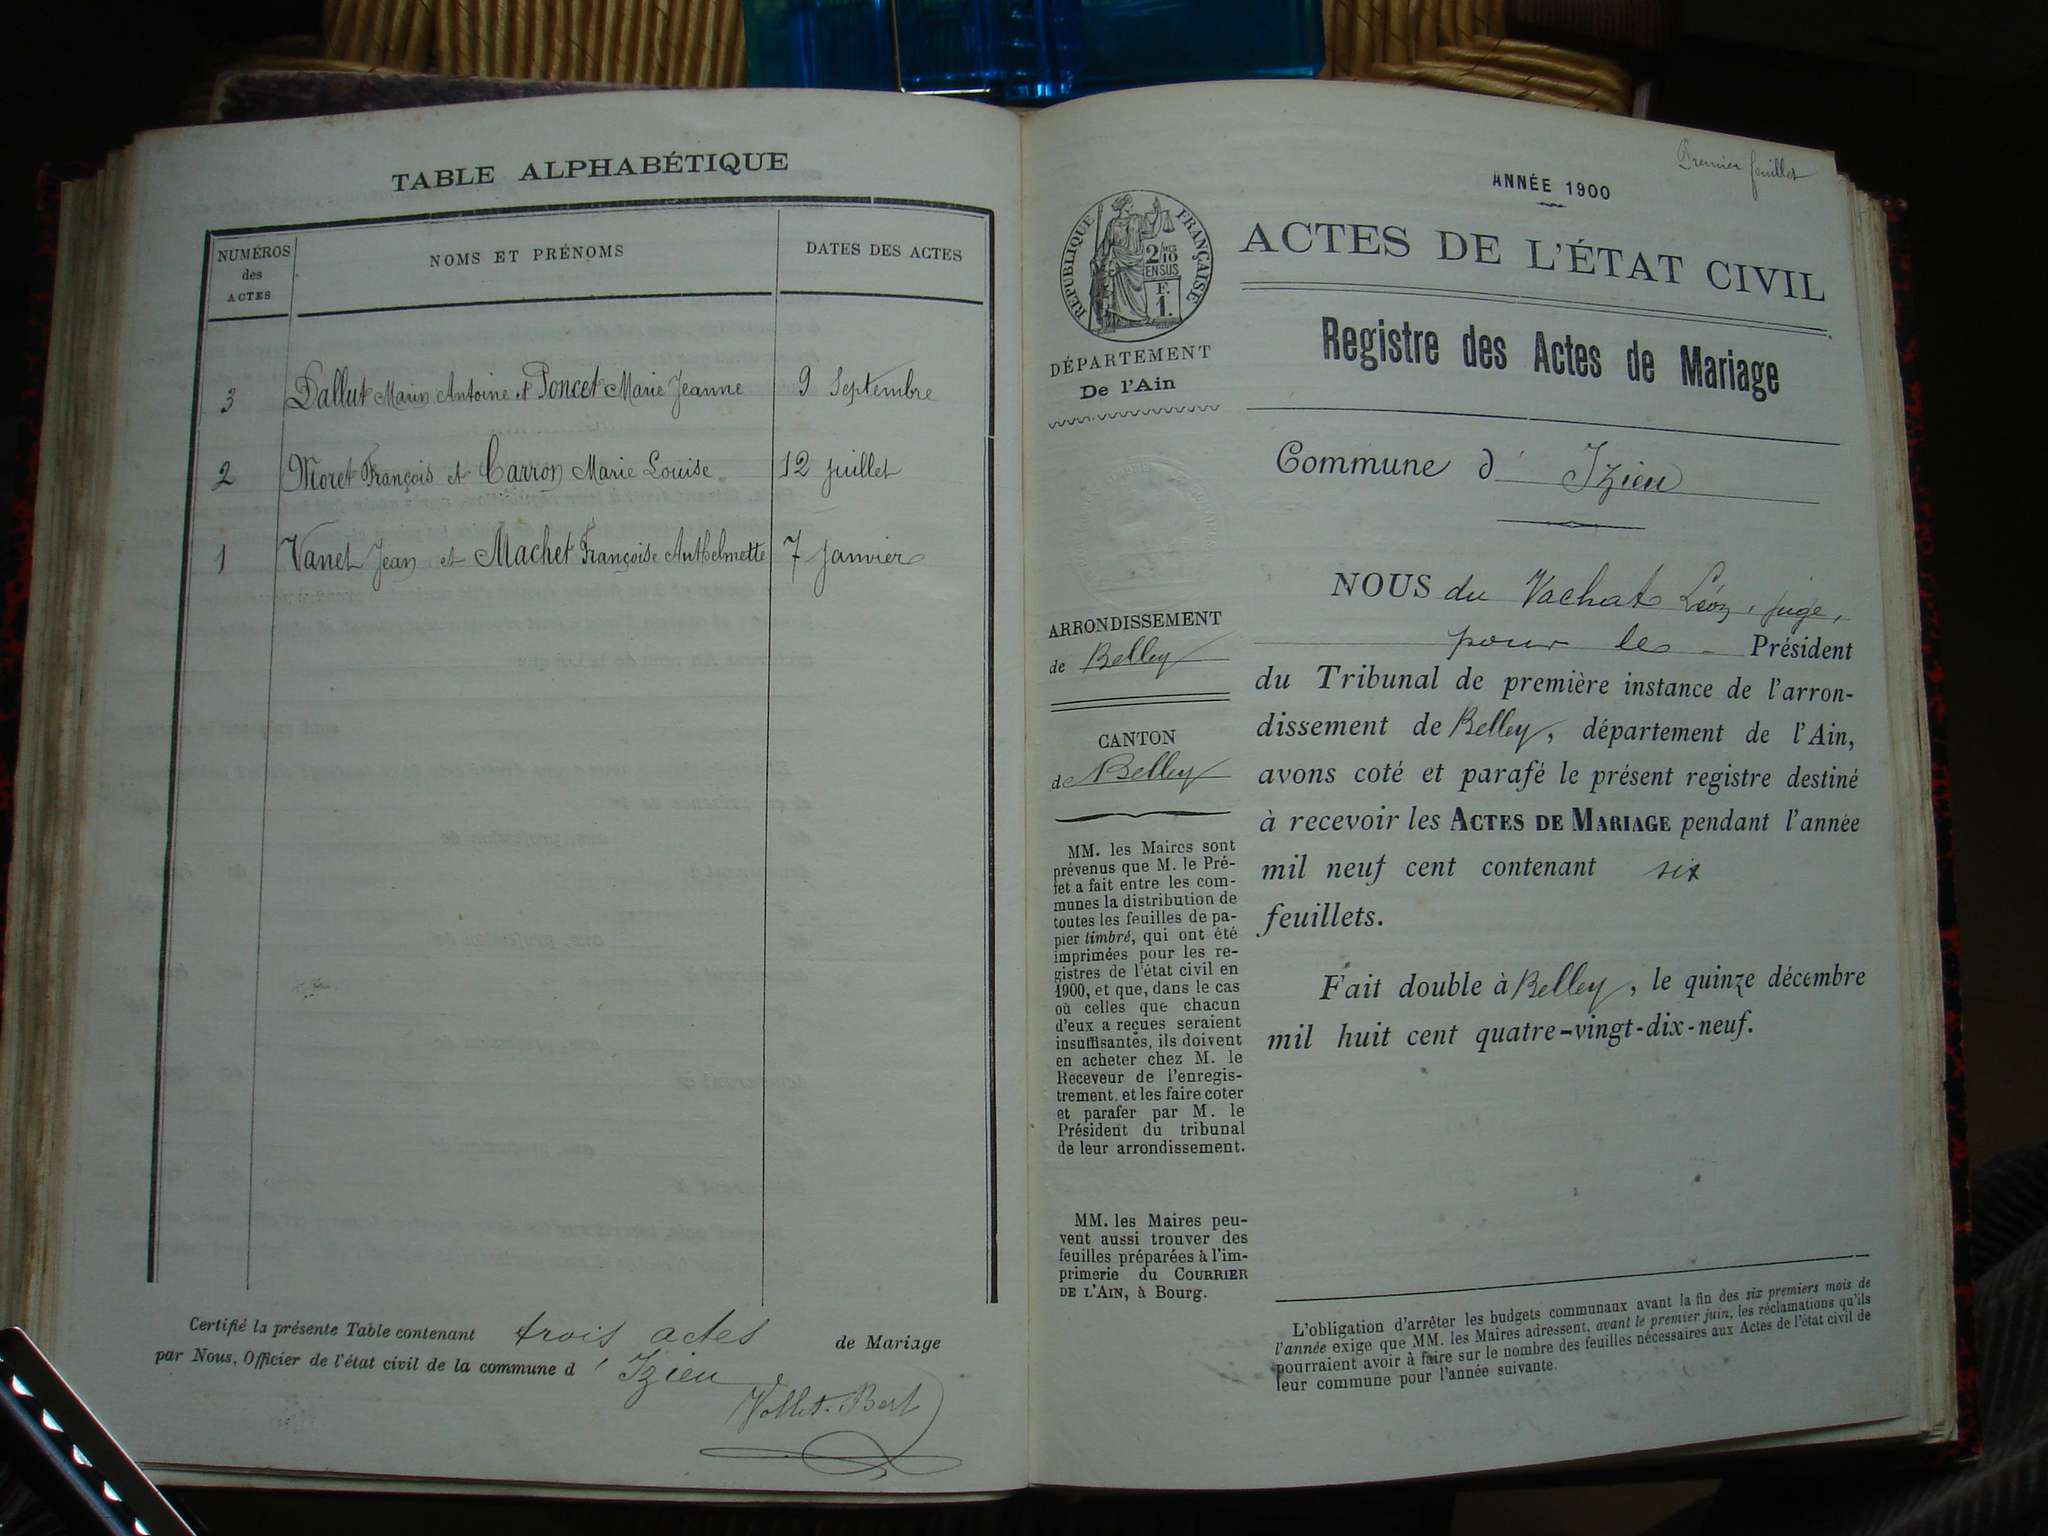 TABLE ALPHABÉTIQUE
NUMÉROS
des
ACTES
NOMS ET PRÉNOMS
DATES DES ACTES
3 Dallut Marin Antoine et Poncet Marie Jeanne 9 Septembre
2 Moret François et Carron Marie Louise 12 juillet
1 Vanet Jean et Machet Françoise Anthelmette 7 janvier
Certifié la présente Table contenant trois actes de Mariage
par Nous, Officier de l'état civil de la commune d' Izieu
Premier feuillet
ANNÉE 1900
RÉPUBLIQUE FRANÇAISE
2/10
EN SUS
F.
1.
DÉPARTEMENT
De l'Ain
ACTES DE L'ÉTAT CIVIL
Registre des Actes de Mariage
Commune d' Izieu
ARRONDISSEMENT
de Belley
CANTON
de Belley
MM. les Maires sont
prévenus que M. le Pré-
fet a fait entre les com-
munes la distribution de
toutes les feuilles de pa-
pier timbré, qui ont été
imprimées pour les re-
gistres de l'état civil en
1900, et que, dans le cas
où celles que chacun
d'eux a reçues seraient
insuffisantes, ils doivent
en acheter chez M. le
Receveur de l'enregis-
trement, et les faire coter
et parafer par M. le
Président du tribunal
de leur arrondissement.
MM. les Maires peu-
vent aussi trouver des
feuilles préparées à l'im-
primerie du COURRIER
DE L'AIN, à Bourg.
NOUS du Vachat Léon, juge,
pour le Président
du Tribunal de première instance de l'arron-
dissement de Belley, département de l'Ain,
avons coté et parafé le présent registre destiné
à recevoir les ACTES DE MARIAGE pendant l'année
mil neuf cent contenant six
feuillets.
Fait double à Belley, le quinze décembre
mil huit cent quatre-vingt-dix-neuf.
L'obligation d'arrêter les budgets communaux avant la fin des six premiers mois de
l'année exige que MM. les Maires adressent, avant le premier juin, les réclamations qu'ils
pourraient avoir à faire sur le nombre des feuilles nécessaires aux Actes de l'état civil de
leur commune pour l'année suivante.